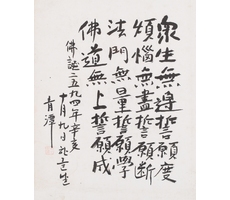 衆生無邊誓願度
煩惱無盡誓願斷
法門無量誓願學
佛道無上誓願成
佛誕二五九四年辛亥
十月九日
青潭